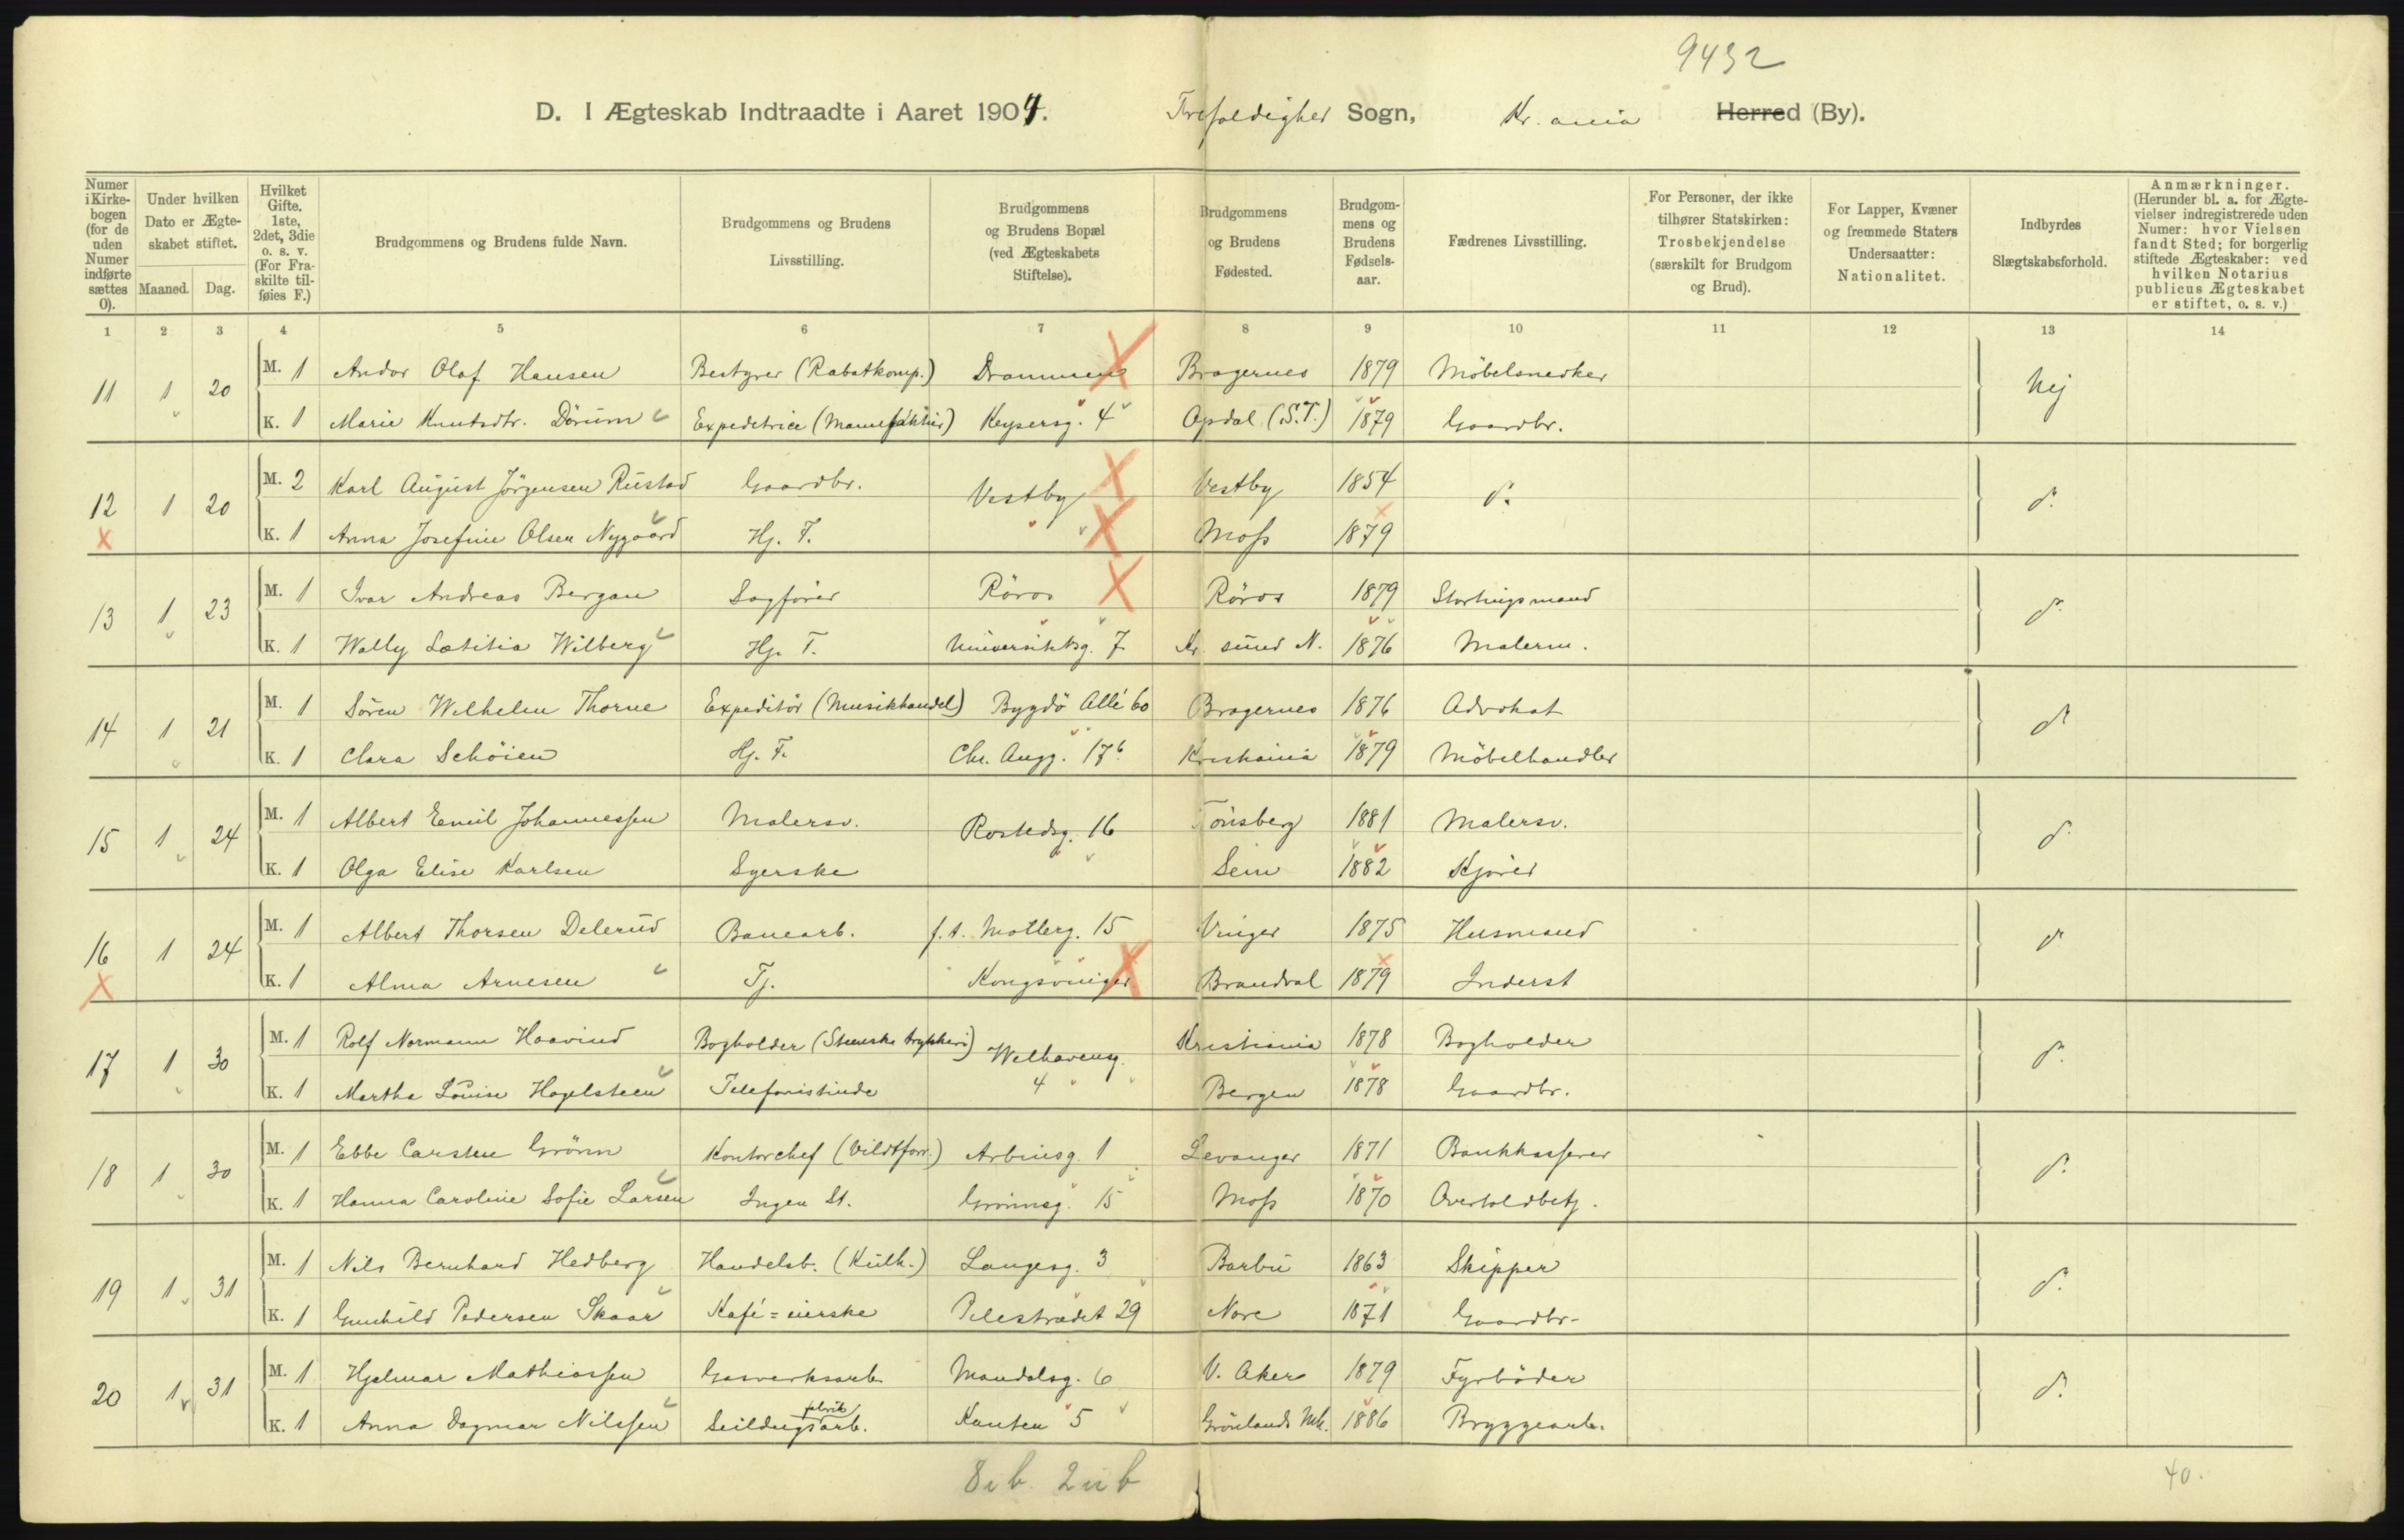 9432
D. I Ægteskab Indtraadte i Aaret 1904. Trefoldighed Sogn, Kr.ania Herred (By).
Numer i Kirkebogen (for de uden Numer indførte sættes 0).
Under hvilken Dato er Ægteskabet stiftet.
Maaned. Dag.
Hvilket Gifte. 1ste, 2det, 3die o. s. v. (For Fraskilte tilføies F.)
Brudgommens og Brudens fulde Navn.
Brudgommens og Brudens Livsstilling.
Brudgommens og Brudens Bopæl (ved Ægteskabets Stiftelse).
Brudgommens og Brudens Fødested.
Brudgommens og Brudens Fødselsaar.
Fædrenes Livsstilling.
For Personer, der ikke tilhører Statskirken: Trosbekjendelse (særskilt for Brudgom og Brud).
For Lapper, Kvæner og fremmede Staters Undersaatter: Nationalitet.
Indbyrdes Slægtskabsforhold.
Anmærkninger. (Herunder bl. a. for Ægtevielser indregistrerede uden Numer: hvor Vielsen fandt Sted; for borgerlig stiftede Ægteskaber: ved hvilken Notarius publicus Ægteskabet er stiftet, o. s. v.)
1 2 3 4 5 6 7 8 9 10 11 12 13 14
11 1 20 M. 1 Andor Olaf Hansen Bestyrer (Rabatkomp.) Drammen Bragernes 1879 Möbelsnedker Nej
K. 1 Marie Knutsdtr. Dörum Expeditrice (Manufaktur) Keysersg. 4 Opdal (S.T.) 1879 Gaardbr.
12 1 20 M. 2 Karl August Jörgensen Rustad Gaardbr. Vestby Vestby 1854 d. d.
K. 1 Anna Josefine Olsen Nygaard Hj. T. " Moss 1879
13 1 23 M. 1 Ivar Andreas Bergan Sagförer Röros Röros 1879 Stortingsmand d.
K. 1 Wally Lætitia Wilberg Hj. T. Universitetsg. 7 Kr. sund N. 1876 Malerm.
14 1 21 M. 1 Sören Wilhelm Thorne Expeditör (Musikhandel) Bygdö Allé 60 Bragernes 1876 Advokat d.
K. 1 Clara Schöien Hj. T. Chr. Augg. 17b. Kristiania 1879 Möbelhandler
15 1 24 M. 1 Albert Emil Johannessen Malersv. Rostedsg. 16 Tönsberg 1881 Malersv. d.
K. 1 Olga Elise Karlsen Syerske Sem 1882 Kjörer
16 1 24 M. 1 Albert Thorsen Delerud Banearb. f.t. Møllerg. 15 Vinger 1875 Husmand d.
K. 1 Alma Arnesen Tj. Kongsvinger Brandval 1879 Inderst
17 1 30 M. 1 Rolf Normann Haavind Bogholder (Steenske trykkeri) Welhavensg. Kristiania 1878 Bogholder d.
K. 1 Martha Louise Hagelsteen Telefonistinde 4 Bergen 1878 Gaardbr.
18 1 30 M. 1 Ebbe Carsten Grönn Kontorchef (Vildtforr.) Arbinsg. 1 Levanger 1871 Bankkasserer d.
K. 1 Hanna Caroline Sofie Larsen Ingen St. Grönnsg. 15 Moss 1870 Overtoldbetj.
19 1 31 M. 1 Nils Bernhard Hedberg Handelsb. (Kulh.) Langesg. 3 Barbu 1863 Skipper d.
K. 1 Gunhild Pedersen Skaar Kafé=eierske Pilestrædet 29 Nore 1871 Gaardbr.
20 1 31 M. 1 Hjalmar Mathiassen Gasverksarb. Mandalsg. 6 V. Aker 1879 Fyrböder d.
K. 1 Anna Dagmar Nilssen Seildugsfabrikarb. Kanten 5 Grönlands Mh. 1886 Bryggearb.
8 ib. 2 ub
40.